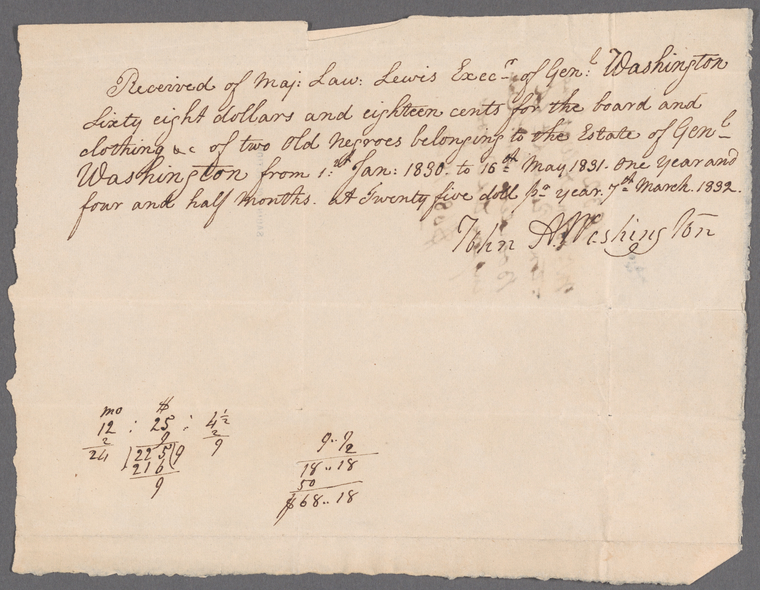 Received of Maj: Law: Lewis Execr of Genl: Washington
Sixty eight dollars and eighteen cents for the board and
clothing &c of two old Negroes belonging to the Estate of Genl
Washington from 1:st Jan: 1830. to 16th May 1831. One Year and
four and half months. at Twenty five doll pr year. 7th March. 1832.
John A. Washington
mo $
12 : 25 : 4½
2 9 2
24 | 225 | 9 9
216
9
9.. 9
2
18.. 18
50
$68.. 18